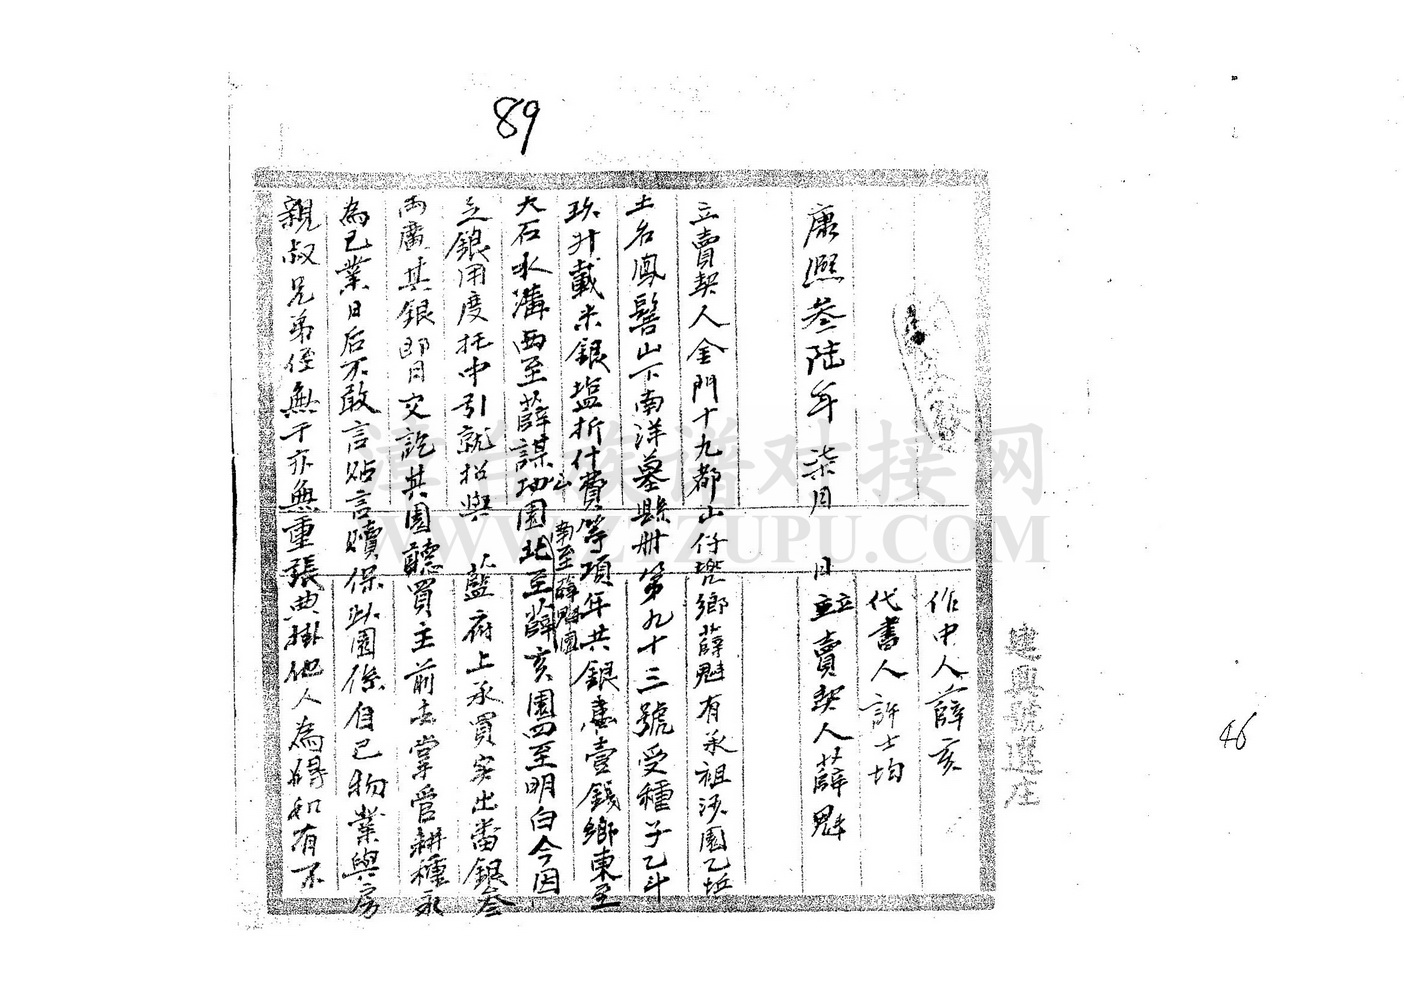 89
作中人薛亥
代書人許士均
康熙叁陆年 柒月 日立賣契人薛魁
立賣契人金門十九都山仔垅鄉薛魁有承祖沙園乙坵
土名鳳髻山下南洋墓縣册第九十三號受種子乙斗
玖升載米銀塩折什費等項年共銀壹錢鄉東至
大石水溝西至薛謀功園北至薛亥園四至明白今因
南至薛魁園
乏銀用度托中引就招與 藍府上承買実出番銀叁
両廣其銀即日交訖其園聽買主前去掌管耕種永
為己業日后不敢言贴言贖保此園係自己物業與房
親叔兄弟侄無干亦無重張典掛他人為碍如有不
建興號選庄
46
漳台族谱对接网
WWW.ZTZUPU.COM